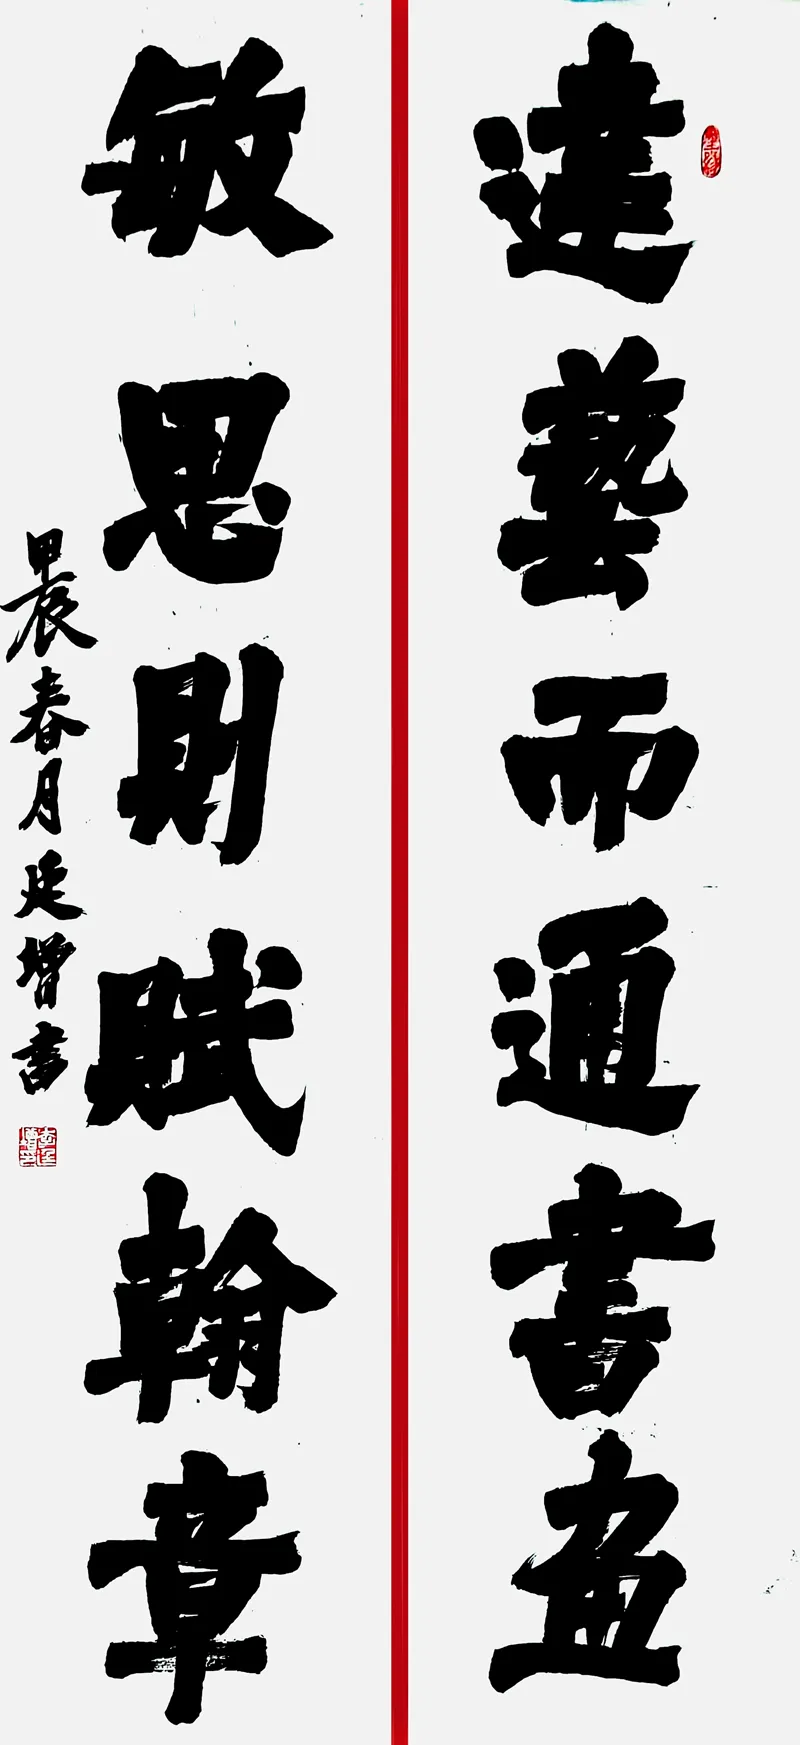 達藝而通書画
敏思則賦翰章
甲辰春月廷增書